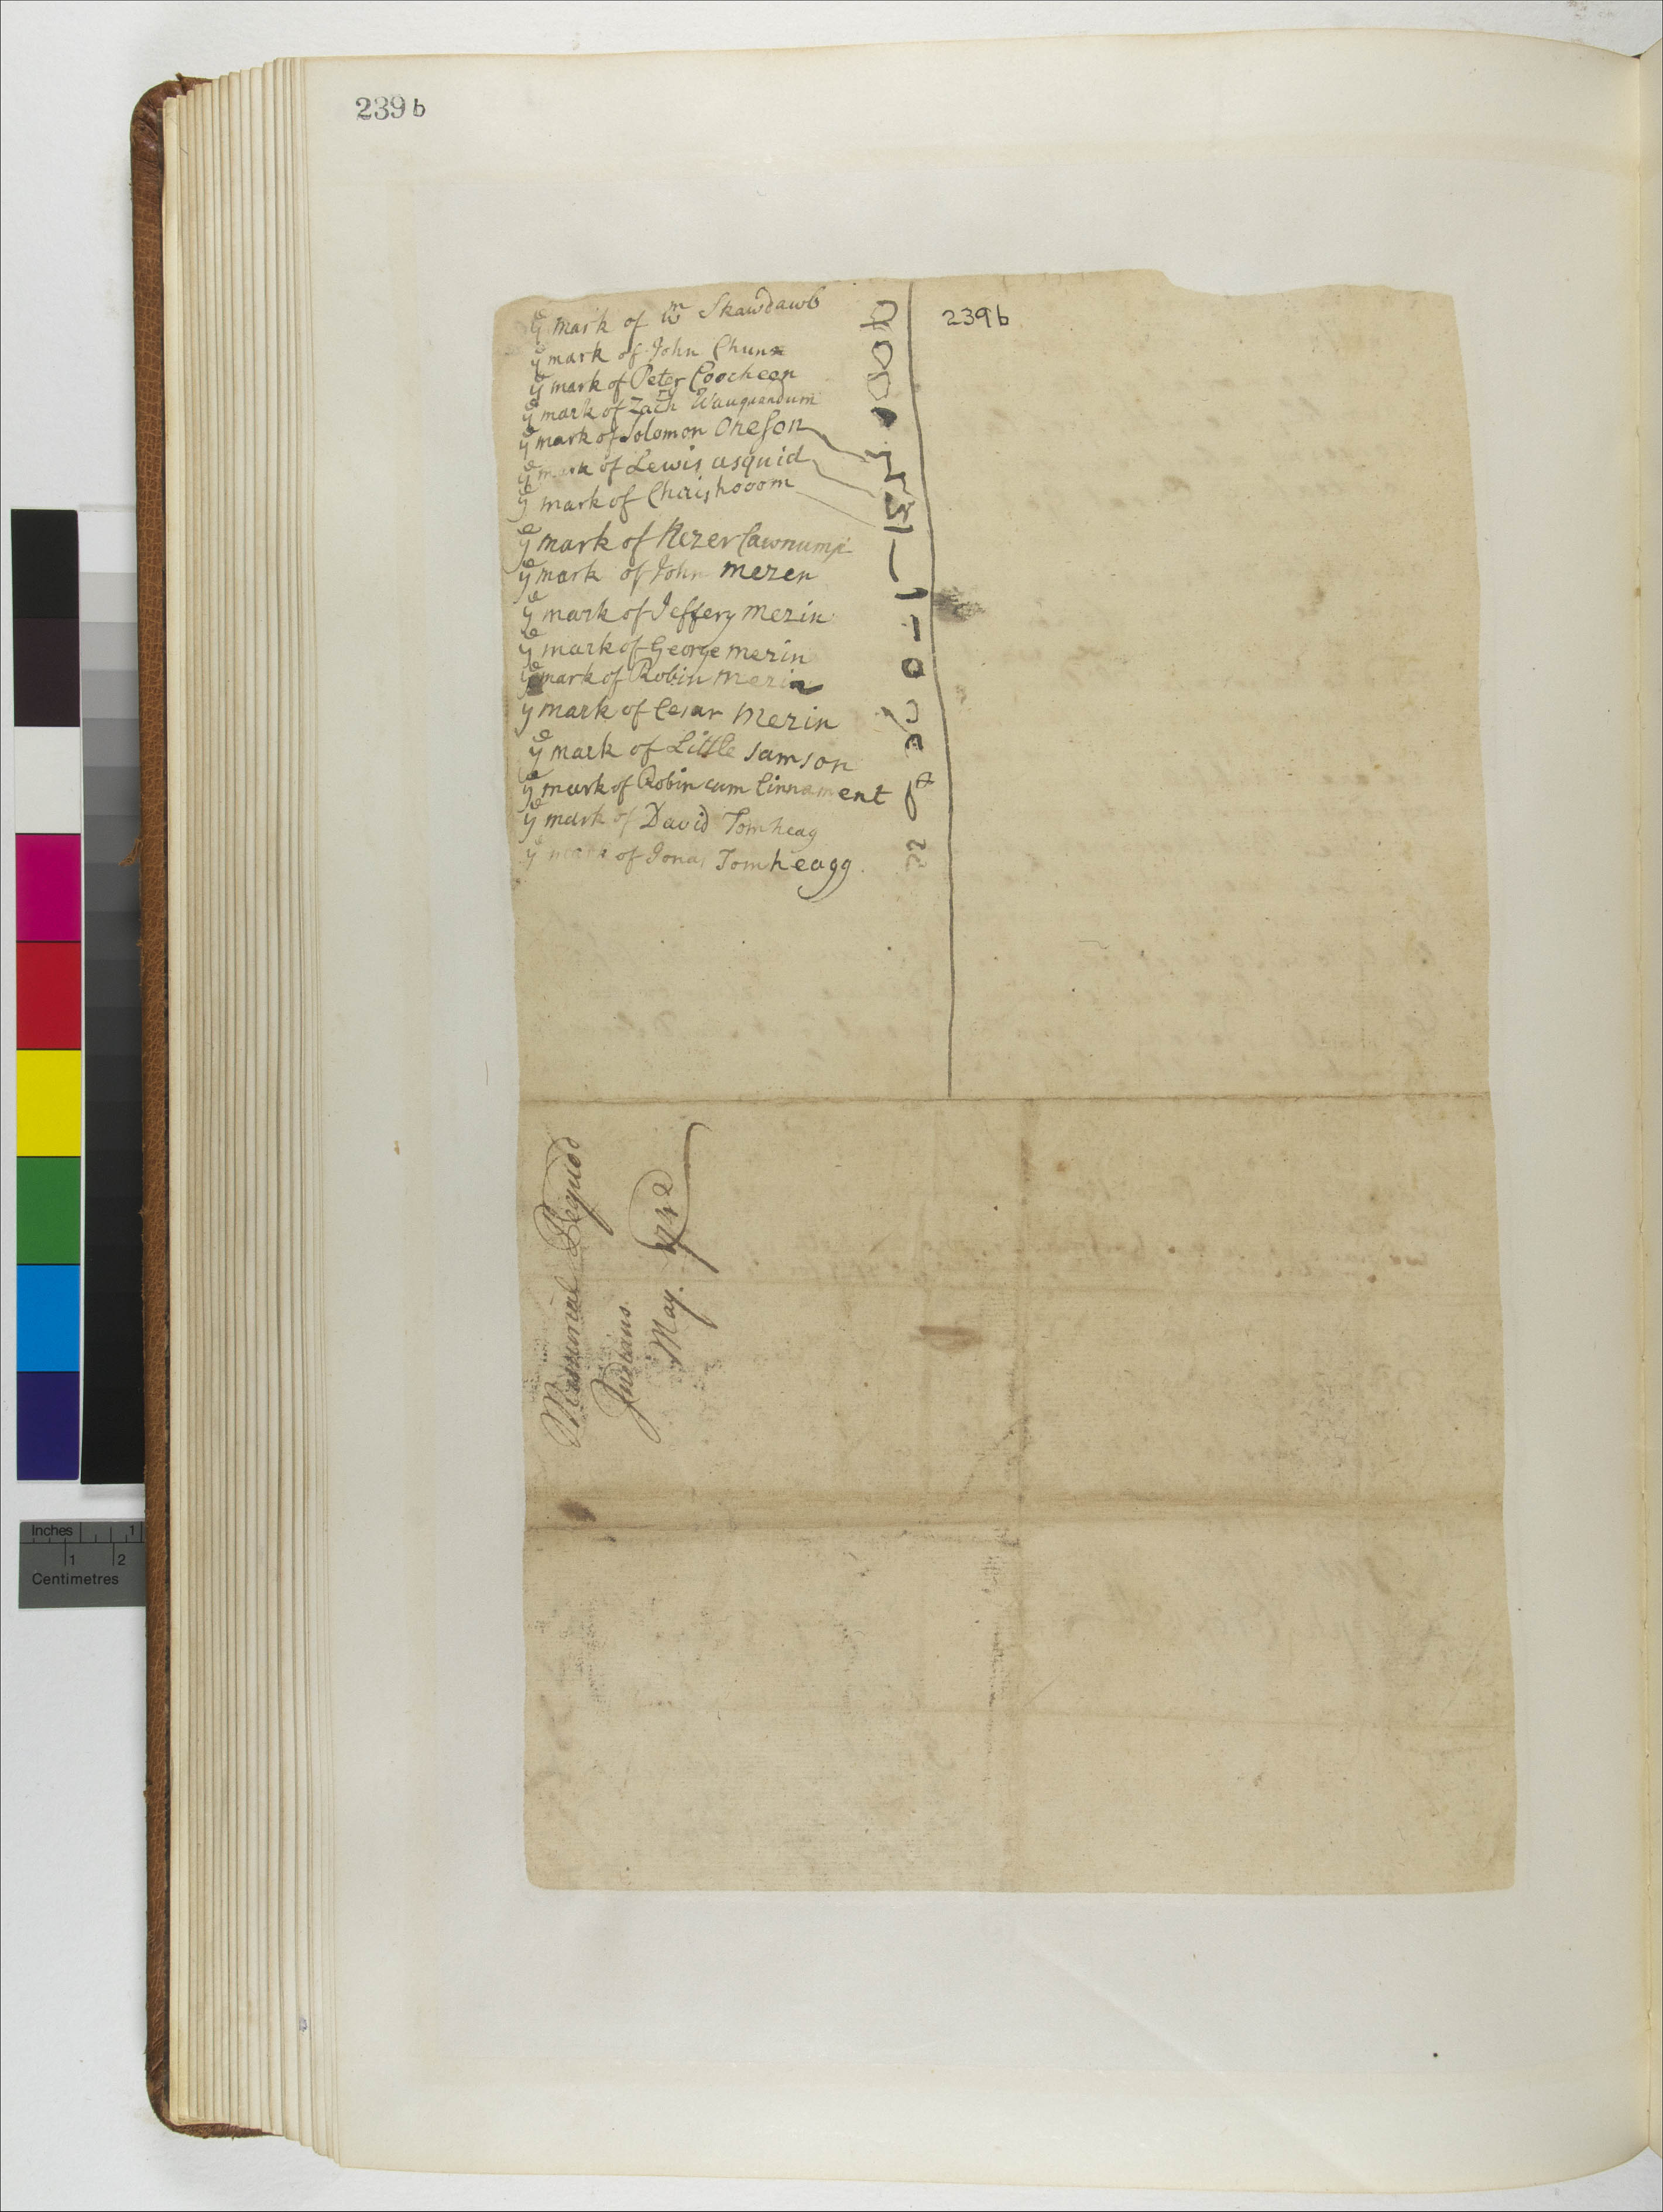 239 b
239 b
yᵉ mark of Wᵐ Skawdawb
yᵉ mark of John Chuns
yᵉ mark of Peter Coocheen
yᵉ mark of Zachʳʸ Wauquandum
yᵉ mark of Solomon Oneson
yᵉ mark of Lewis asquid
yᵉ mark of Chrishooom
yᵉ mark of Kezer Cawnump
yᵉ mark of John mezen
yᵉ mark of Jeffery mezin
yᵉ mark of George mezin
yᵉ mark of Robin mezin
y mark of Cesar Mezin
yᵉ mark of Little samson
yᵉ mark of Robin cum Cinnament
yᵉ mark of David Tomheag
yᵉ mark of Jonas Tomheagg
Memorial Pequod
Indians
May. 1742
Inches 1
1 2
Centimetres